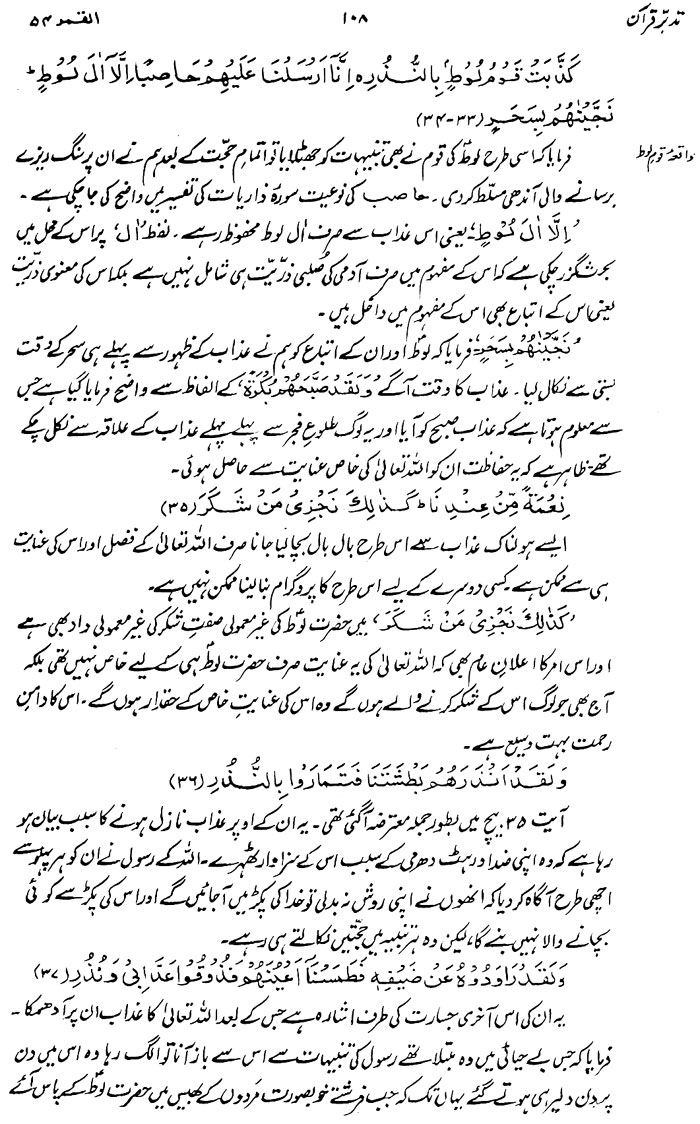 تدبرِ قرآن ۱۰۸ القمر ۵۴
كَذَّبَتْ قَوْمُ لُوطٍ بِالنُّذُرِ ه اِنَّآ اَرْسَلْنَا عَلَيْهِمْ حَاصِبًا اِلَّآ اٰلَ لُوْطٍ ط
نَجَّيْنٰهُمْ بِسَحَرٍ (۳۳-۳۴)
واقعہ قوم لوط
فرمایا کہ اسی طرح لوطؑ کی قوم نے بھی تنبیہات کو جھٹلایا تو اتمامِ حجت کے بعد ہم نے ان پر سنگ ریزے
برسانے والی آندھی مسلّط کر دی۔ حاصب کی نوعیت سورۂ ذاریات کی تفسیر میں واضح کی جا چکی ہے۔
’اِلَّا اٰلَ لُوْطٍ‘ یعنی اس عذاب سے صرف آل لوط محفوظ رہے۔ لفظ ’اٰل‘ پر اس کے محل میں
بحث گزر چکی ہے کہ اس کے مفہوم میں صرف آدمی کی صُلبی ذریّت ہی شامل نہیں ہے بلکہ اس کی معنوی ذریّت
یعنی اس کے اتباع بھی اس کے مفہوم میں داخل ہیں۔
’نَجَّيْنٰهُمْ بِسَحَرٍ‘ فرمایا کہ لوطؑ اور ان کے اتباع کو ہم نے عذاب کے ظہور سے پہلے ہی سحر کے وقت
بستی سے نکال لیا۔ عذاب کا وقت آگے ’وَلَقَدْ صَبَّحَهُمْ بُكْرَةً‘ کے الفاظ سے واضح فرمایا گیا ہے جس
سے معلوم ہوتا ہے کہ عذاب صبح کو آیا اور یہ لوگ طلوعِ فجر سے پہلے پہلے عذاب کے علاقہ سے نکل چکے
تھے۔ ظاہر ہے کہ یہ حفاظت ان کو اللہ تعالیٰ کی خاص عنایت سے حاصل ہوئی۔
نِعْمَةً مِّنْ عِنْدِنَا ط كَذٰلِكَ نَجْزِیْ مَنْ شَكَرَ (۳۵)
ایسے ہولناک عذاب سے اس طرح بال بال بچا لیا جانا صرف اللہ تعالیٰ کے فضل اور اس کی عنایت
ہی سے ممکن ہے۔ کسی دوسرے کے لیے اس طرح کا پروگرام بنا لینا ممکن نہیں ہے۔
’كَذٰلِكَ نَجْزِیْ مَنْ شَكَرَ‘ میں حضرت لوطؑ کی غیر معمولی صفتِ شکر کی غیر معمولی داد بھی ہے
اور اس امر کا اعلانِ عام بھی کہ اللہ تعالیٰ کی یہ عنایت صرف حضرت لوطؑ ہی کے لیے خاص نہیں تھی بلکہ
آج بھی جو لوگ اس کے شکر کرنے والے ہوں گے وہ اس کی عنایتِ خاص کے حقدار ہوں گے۔ اس کا دامنِ
رحمت بہت وسیع ہے۔
وَلَقَدْ اَنْذَرَهُمْ بَطْشَتَنَا فَتَمَارَوْا بِالنُّذُرِ (۳۶)
آیت ۳۵ بیچ میں بطور جملہ معترضہ آ گئی تھی۔ یہ ان کے اوپر عذاب نازل ہونے کا سبب بیان ہو
رہا ہے کہ وہ اپنی ضد اور ہٹ دھرمی کے سبب اس کے سزاوار ٹھہرے۔ اللہ کے رسول نے ان کو ہر پہلو سے
اچھی طرح آگاہ کر دیا کہ انھوں نے اپنی روش نہ بدلی تو خدا کی پکڑ میں آ جائیں گے اور اس کی پکڑ سے کوئی
بچانے والا نہیں بنے گا، لیکن وہ ہر تنبیہ میں حجتیں نکالتے ہی رہے۔
وَلَقَدْ رَاوَدُوْهُ عَنْ ضَيْفِهٖ فَطَمَسْنَآ اَعْيُنَهُمْ فَذُوْقُوْا عَذَابِیْ وَنُذُرِ (۳۷)
یہ ان کی اس آخری جسارت کی طرف اشارہ ہے جس کے بعد اللہ تعالیٰ کا عذاب ان پر آ دھمکا۔
فرمایا کہ جس بے حیائی میں وہ مبتلا تھے رسول کی تنبیہات سے اس سے باز آنا تو الگ رہا وہ اس میں دن
پر دن دلیر ہی ہوتے گئے یہاں تک کہ جب فرشتے خوبصورت مَردوں کے بھیس میں حضرت لوطؑ کے پاس آئے